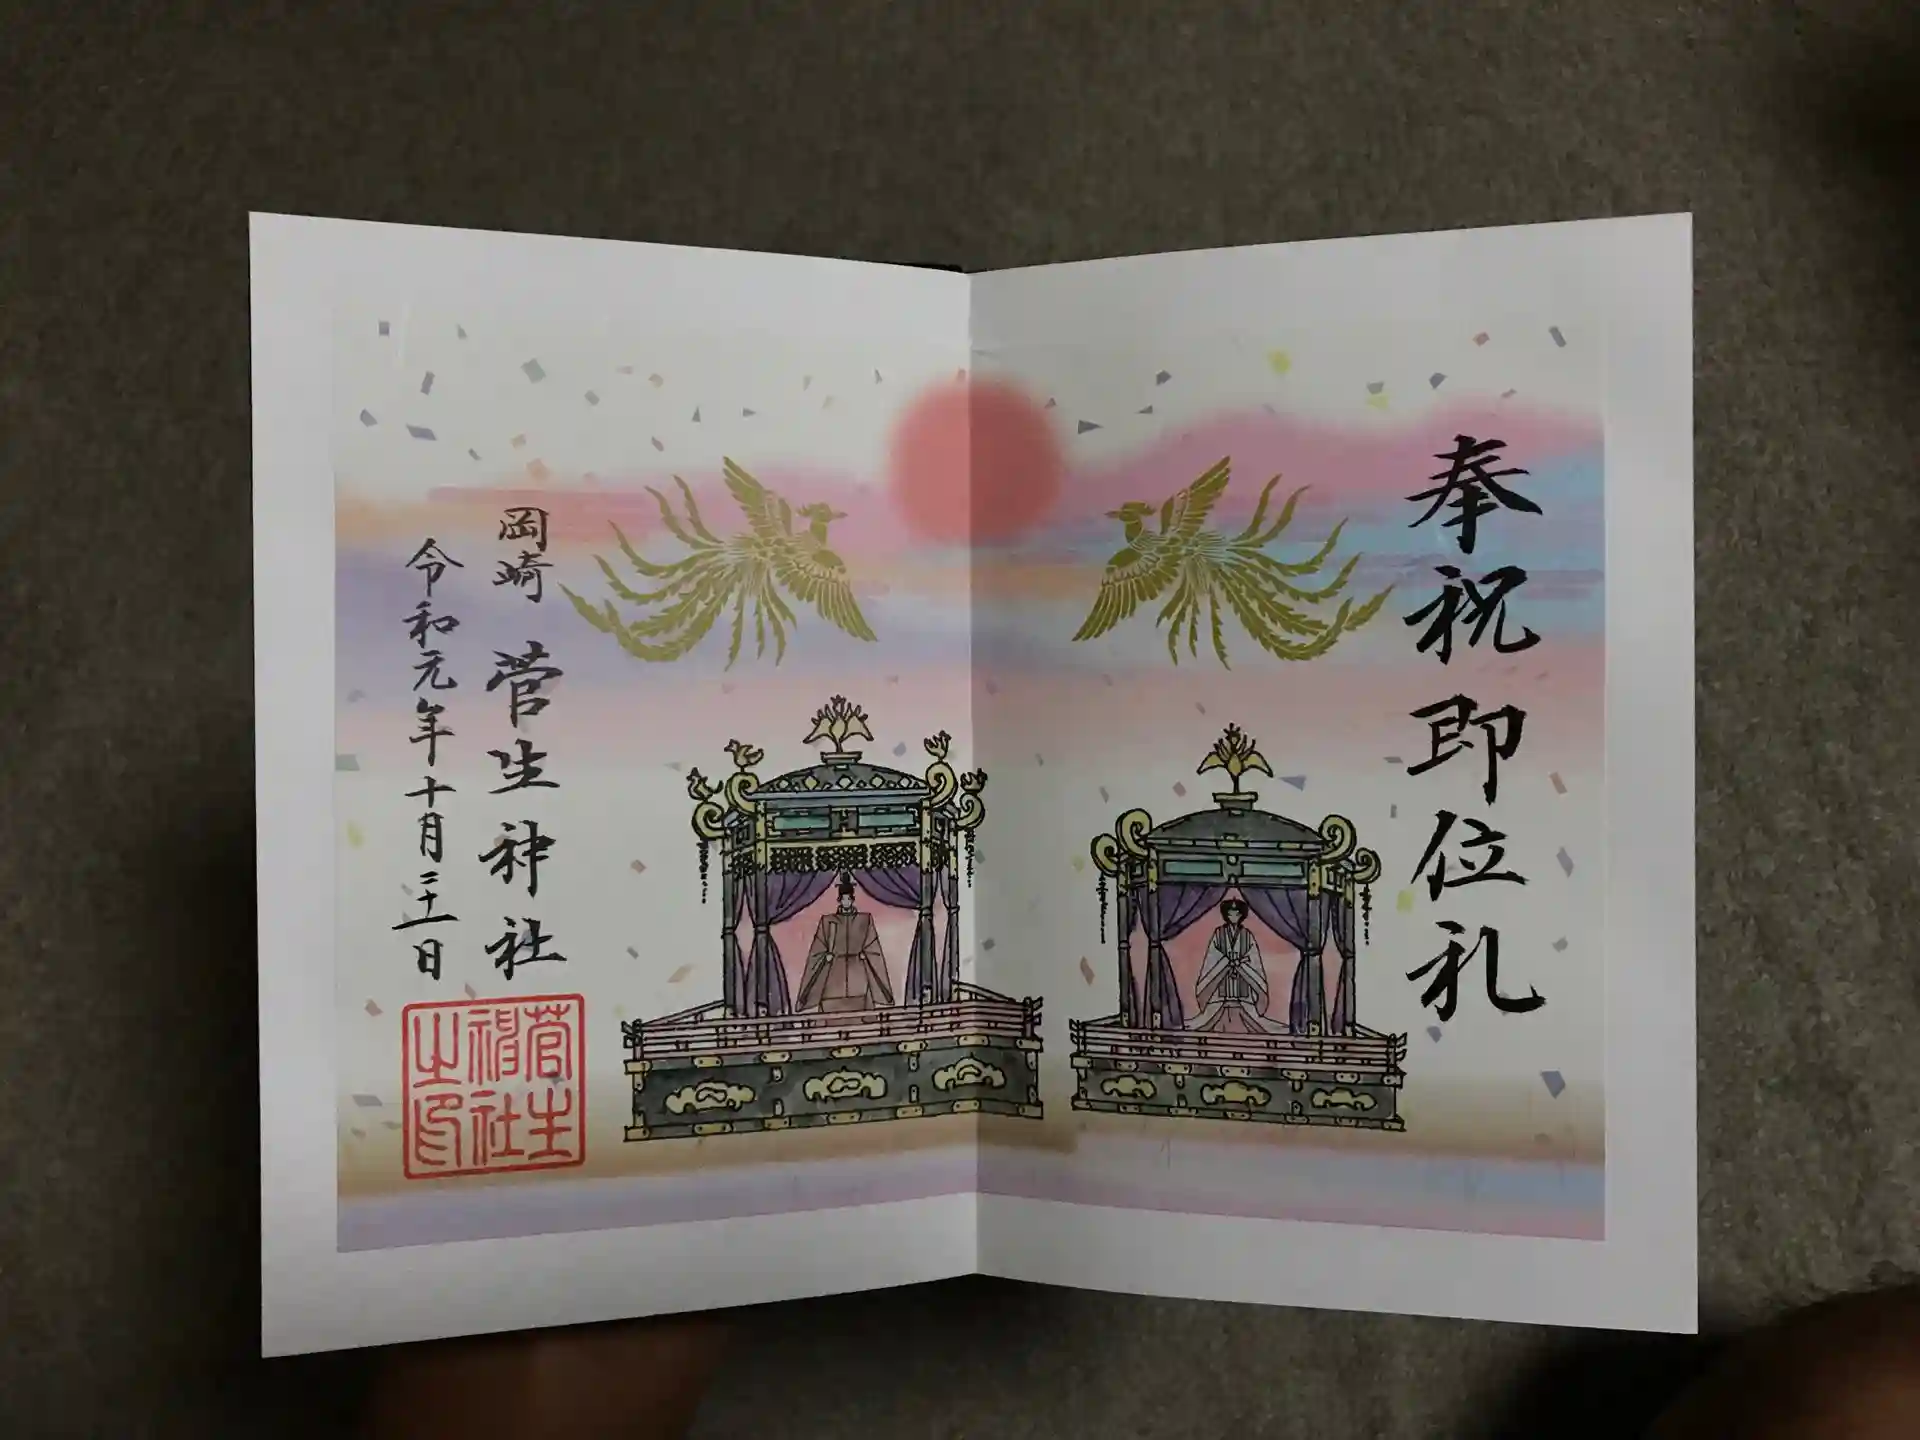 奉祝即位礼
岡崎 菅生神社
令和元年十月二十二日
菅生
神社
之印